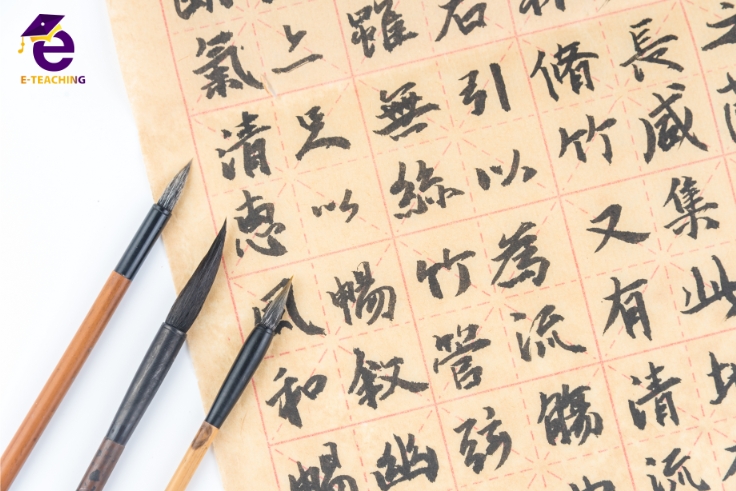 長咸集此地
脩竹又有清流
右引以為流觴
雖無絲竹管弦
足以暢敘幽
氣清惠風和暢
E-TEACHING